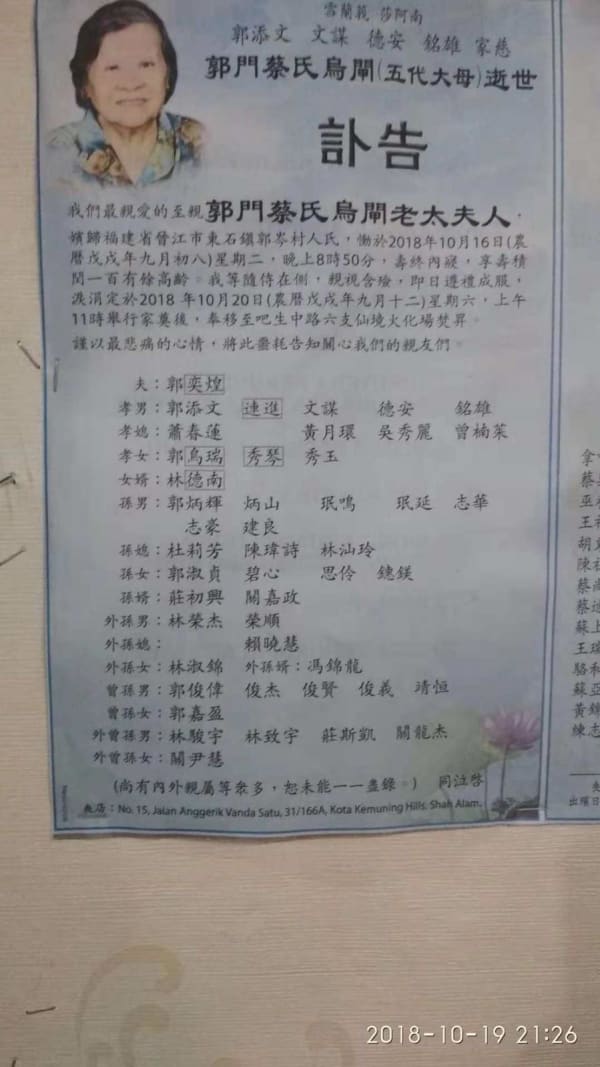 雪蘭莪 莎阿南
郭添文 文謀 德安 銘雄 家慈
郭門蔡氏烏閘(五代大母)逝世
訃告
我們最親愛的至親郭門蔡氏烏閘老太夫人，
嬪歸福建省晉江市東石鎮郭岑村人氏，慟於2018年10月16日(農
曆戊戌年九月初八)星期二，晚上8時50分，壽終內寢，享壽積
閏一百有餘高齡。我等隨侍在側，親視含殮，即日遵禮成服，
淚涓定於2018 年10月20日(農曆戊戌年九月十二)星期六，上午
11時舉行家奠後，奉移至吧生中路六支仙境火化場焚昇。
謹以最悲痛的心情，將此噩耗告知關心我們的親友們。
夫：郭奕煌
孝男：郭添文 連進 文謀 德安 銘雄
孝媳：蕭春蓮 黃月環 吳秀麗 曾楠茱
孝女：郭烏瑞 秀琴 秀玉
女婿：林德南
孫男：郭炳輝 炳山 珉鳴 珉延 志華
志豪 建良
孫媳：杜莉芳 陳瑋詩 林汕玲
孫女：郭淑貞 碧心 思伶 鏸鎂
孫婿：莊初興 關嘉政
外孫男：林榮杰 榮順
外孫媳： 賴曉慧
外孫女：林淑錦 外孫婿：馮錦龍
曾孫男：郭俊偉 俊杰 俊賢 俊義 靖恒
曾孫女：郭嘉盈
外曾孫男：林駿宇 林致宇 莊斯凱 關龍杰
外曾孫女：關尹慧
(尚有內外親屬等衆多，恕未能一一盡錄。) 同泣啓
喪居：No. 15, Jalan Anggerik Vanda Satu, 31/166A, Kota Kemuning Hills, Shah Alam.
2018-10-19 21:26